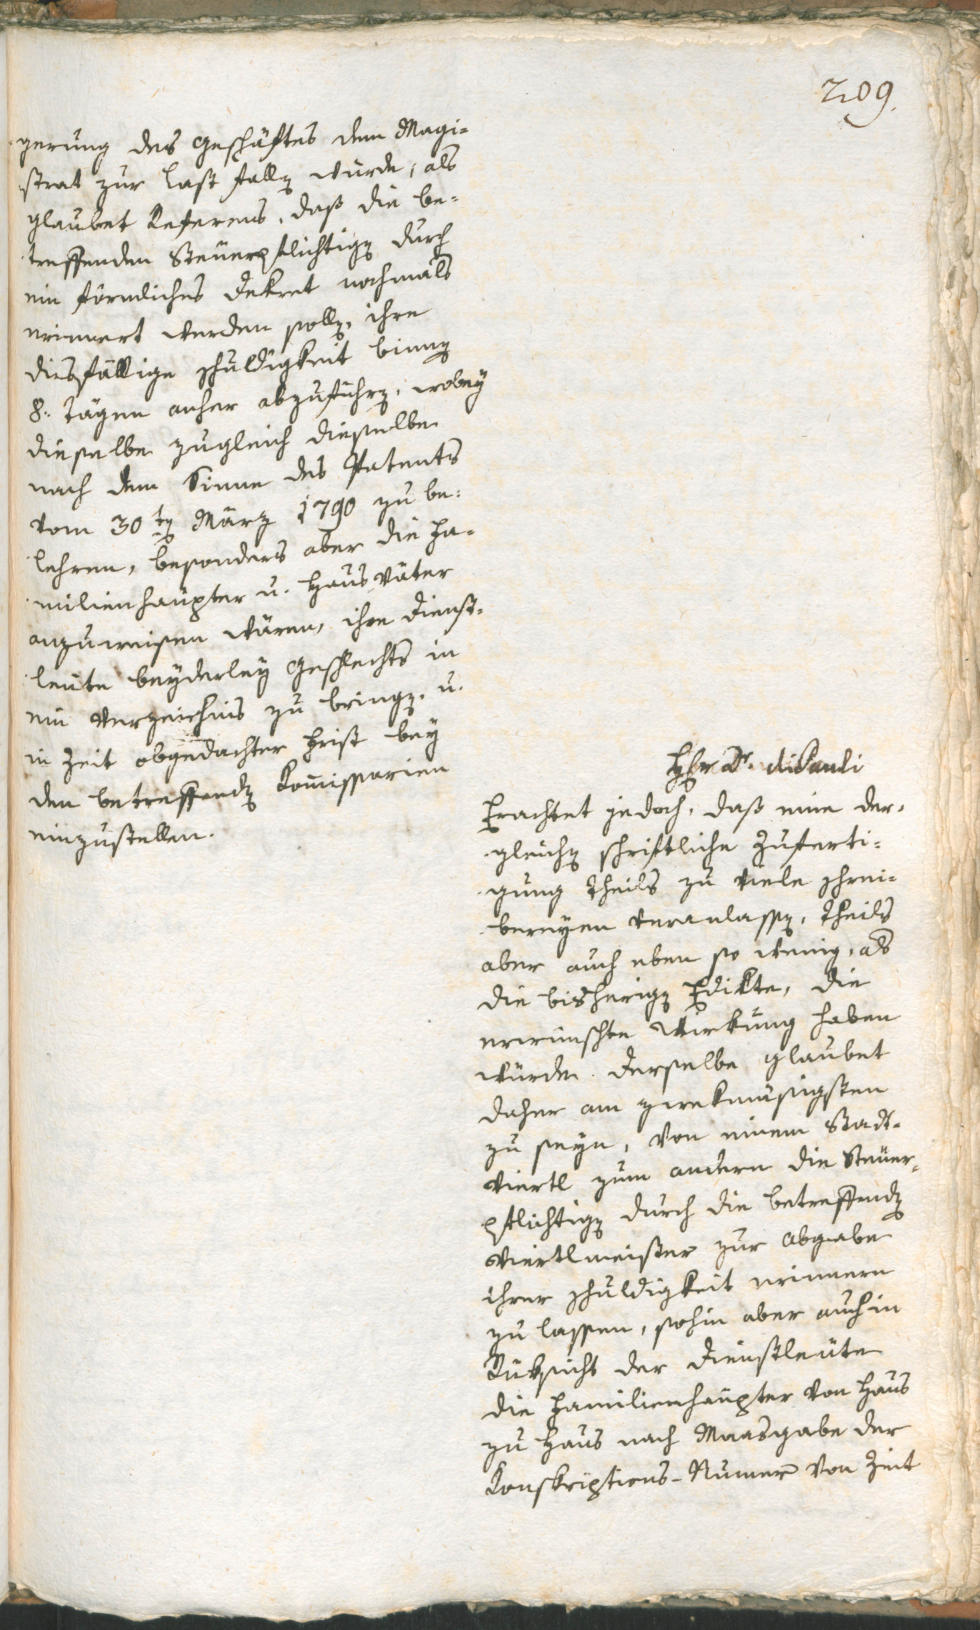 209.
gerung des Geschäftes dem Magi-
strat zur Last fallen würde, als
glaubet Referens, daß die be-
treffenden Steuerpflichtigen durch
ein förmliches Dekret nochmals
erinnert werden sollen, ihre
diesfällige Schuldigkeit binnen
8. Tägen anher abzuführen, wobey
dieselbe zugleich dieselbe
nach dem Sinne des Patents
vom 30ten März 1790 zu be-
lehren, besonders aber die Fa-
milienhäupter u. Hausväter
anzuweisen wären, ihre Dienst-
leute beyderley Geschlechts in
ein Verzeichnis zu bringen, u.
in Zeit obgedachter Frist bey
den betreffenden Kommissarien
einzustellen.
Hr Dr. diPauli
Erachtet jedoch, daß eine der-
gleichen schriftliche Zuferti-
gung theils zu viele Schrei-
bereyen veranlassen, theils
aber auch eben so wenig, als
die bisherigen Edikte, die
erwünschte Wirkung haben
würde. Derselbe glaubet
daher am zwekmäsigsten
zu seyn, von einem Stadt-
viertl zum andern die Steuer-
pflichtigen durch die betreffenden
Viertlmeister zur Abgabe
ihrer Schuldigkeit erinnern
zu lassen, sohin aber auch in
Rüksicht der Dienstleute
die Familienhäupter von Haus
zu Haus nach Maasgabe der
Konskriptions-Numer von Zeit